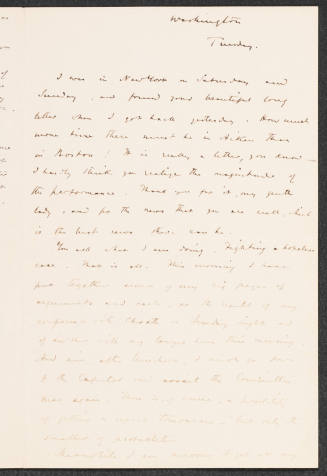 Washington
Tuesday.
I was in New York on Saturday and
Sunday, and found your beautiful long
letter when I got back yesterday. How much
more time there must be in Aiken than
in Boston! It is really a letter, you know —
I hardly think you realize the magnitude of
the performance. Thank you for it, my gentle
lady, and for the news that you are well, which
is the best news there can be.
You ask what I am doing. Fighting a hopeless
case. That is all. This morning I have
put together some of my big pages of
arguments and such, as the result of my
conference with Choate on Sunday night and
of another with my lawyer here this morning.
And now, after luncheon, I must go down
to the Capitol and assault the Committee
man again. There is, of course, a possibility
of getting a report tomorrow — but only the
smallest of probabilities.
Meanwhile I am